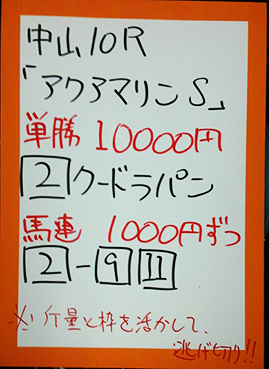 中山10R
「アクアマリンS」
単勝 10000円
2 クードラパン
馬連 1000円ずつ
2-9 11
※斤量と枠を活かして、
逃げ切り!!